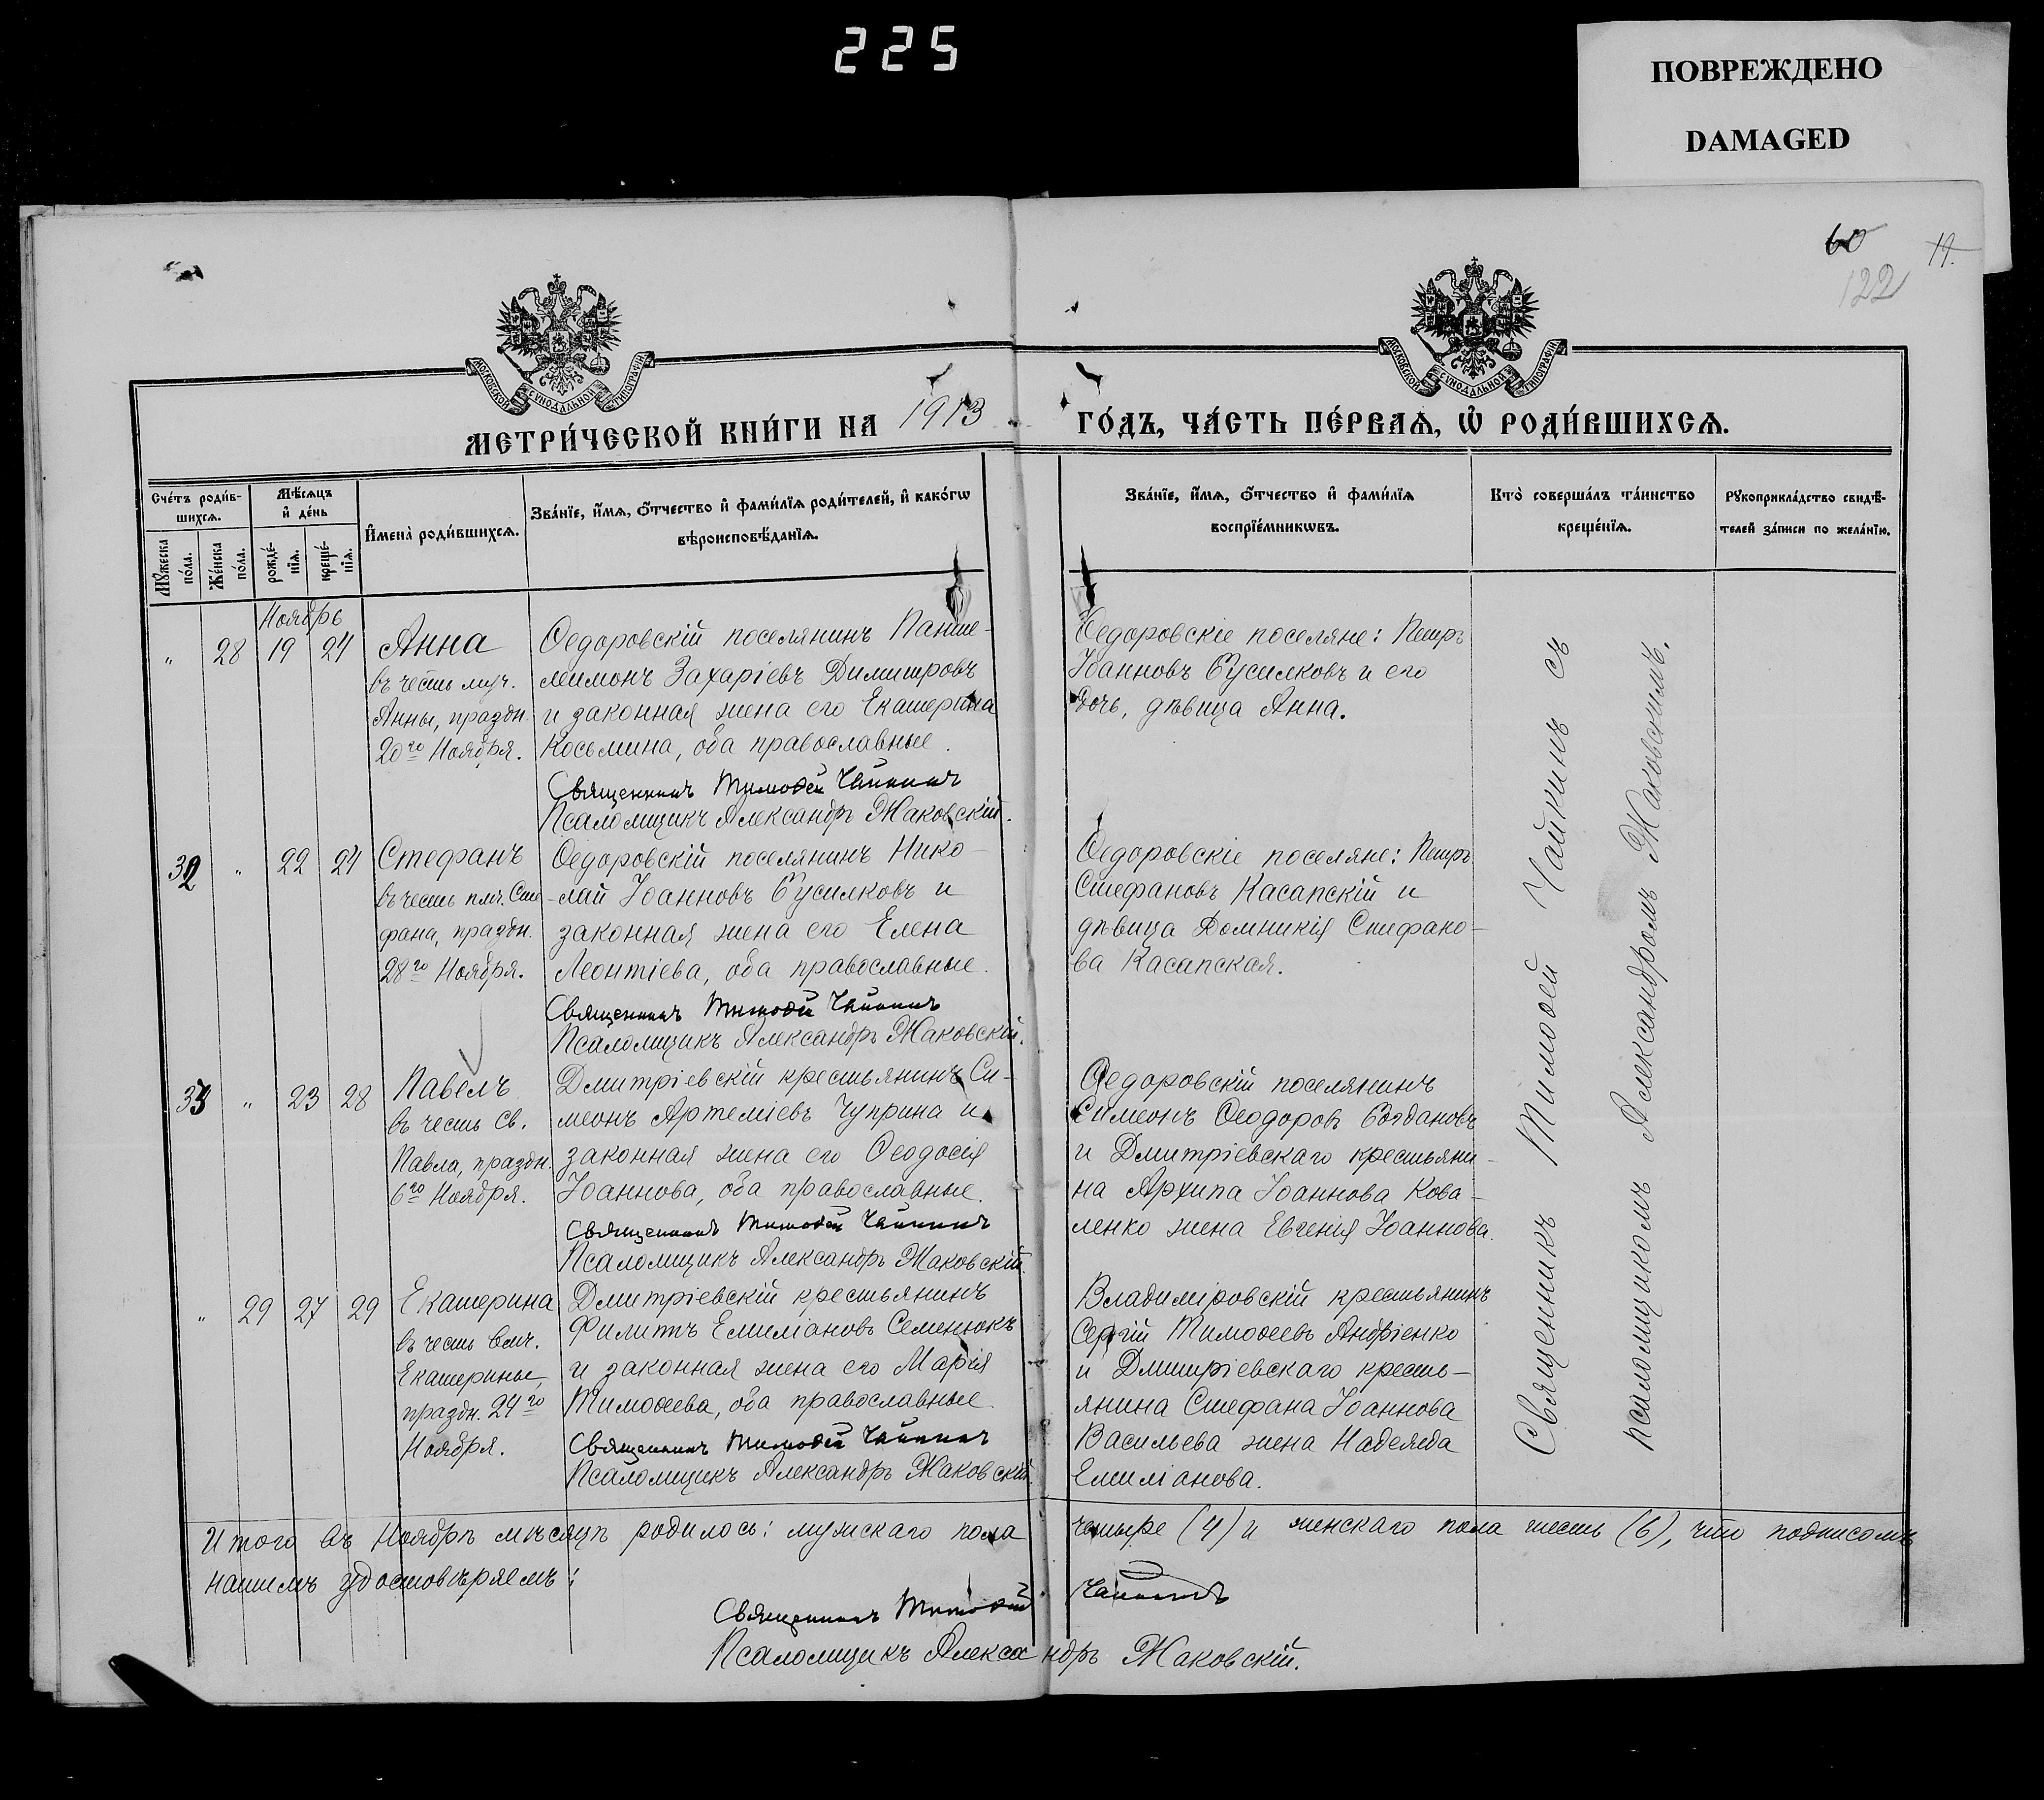 225
ПОВРЕЖДЕНО
DAMAGED
60
19.
122
МОСКОВСКОЙ СѴНОДАЛЬНОЙ ТИПОГРАФІИ
МОСКОВСКОЙ СѴНОДАЛЬНОЙ ТИПОГРАФІИ
МЕТРИ́ЧЕСКОЙ КНИ́ГИ НА 1913 ГО́ДЪ, ЧА́СТЬ ПЕ́РВАѦ, Ѡ҆ РОДИ́ВШИХСѦ.
Сче́тъ роди́в-
шихсѧ.
Мѣ́сѧцъ
и҆ де́нь
Мꙋ́жеска
по́ла.
Же́нска
по́ла.
рожде́-
нїѧ.
креще́-
нїѧ.
И҆мена̀ роди́вшихсѧ.
Зва́нїе, и҆́мѧ, ѻ҆́тчество и҆ фами́лїѧ роди́телей, и҆ како́гѡ
вѣроисповѣ́данїѧ.
Зва́нїе, и҆́мѧ, ѻ҆́тчество и҆ фами́лїѧ
воспрїе́мникѡвъ.
Кто̀ соверша́лъ та́инство
креще́нїѧ.
Рꙋкоприкла́дство свидѣ́-
телей за́писи по жела́нїю.
Ноябрь
" 28 19 24
Анна
въ честь муч.
Анны, праздн.
20го Ноября.
Ѳедоровскій поселянинъ Панте-
леимонъ Захаріевъ Димитровъ
и законная жена его Екатерина
Косьмина, оба православные.
Священникъ Тимоѳей Чайкинъ
Псаломщикъ Александръ Жаковскій.
Ѳедоровскіе поселяне: Петръ
Іоанновъ Бусилковъ и его
дочь, дѣвица Анна.
32 " 22 24
Стефанъ
въ честь пмч. Сте-
фана, праздн.
28го Ноября.
Ѳедоровскій поселянинъ Нико-
лай Іоанновъ Бусилковъ и
законная жена его Елена
Леонтіева, оба православные.
Священникъ Тимоѳей Чайкинъ
Псаломщикъ Александръ Жаковскій.
Ѳедоровскіе поселяне: Петръ
Стефановъ Касапскій и
дѣвица Домникія Стефано-
ва Касапская.
33 " 23 28
Павелъ
въ честь Св.
Павла, праздн.
6го Ноября.
Дмитріевскій крестьянинъ Си-
меонъ Артеміевъ Чуприна и
законная жена его Ѳеодосія
Іоаннова, оба православные.
Священникъ Тимоѳей Чайкинъ
Псаломщикъ Александръ Жаковскій.
Ѳедоровскій поселянинъ
Симеонъ Ѳеодоровъ Богдановъ
и Дмитріевскаго крестьяни-
на Архипа Іоаннова Кова-
ленко жена Евгенія Іоаннова.
" 29 27 29
Екатерина
въ честь влмч.
Екатерины,
праздн. 24го
Ноября.
Дмитріевскій крестьянинъ
Филиппъ Емиліановъ Семенюкъ
и законная жена его Марія
Тимоѳеева, оба православные.
Священникъ Тимоѳей Чайкинъ
Псаломщикъ Александръ Жаковскій.
Владиміровскій крестьянинъ
Сергій Тимоѳеевъ Андріенко
и Дмитріевскаго кресть-
янина Стефана Іоаннова
Васильева жена Надежда
Емиліанова.
Священникъ Тимоѳей Чайкинъ съ
псаломщикомъ Александромъ Жаковскимъ.
Итого въ Ноябрѣ мѣсяцѣ родилось: мужскаго пола четыре (4) и женскаго пола шесть (6), что подписомъ
нашимъ удостовѣряемъ:
Священникъ Тимоѳей Чайкинъ
Псаломщикъ Александръ Жаковскій.